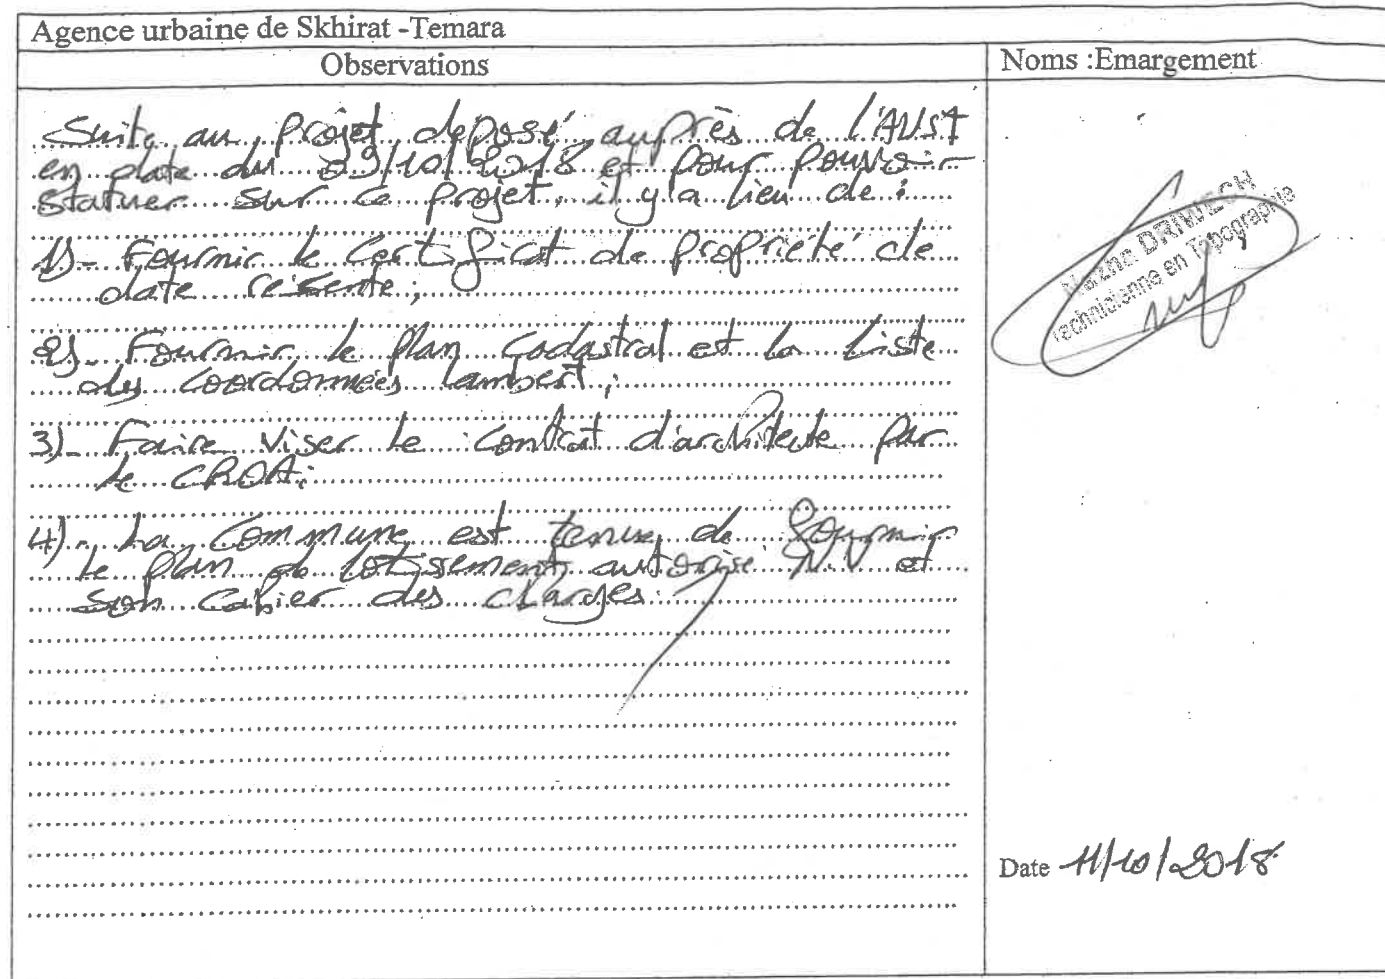 Agence urbaine de Skhirat -Temara
Observations
Noms :Emargement
Suite au projet deposé auprès de l'AUST
en date du 09/10/2018 et pour pouvoir
statuer sur ce projet, il y'a lieu de :
1)- Fournir le Certificat de propriété de
date récente ;
2)- Fournir le plan Cadastral et la Liste
des Coordonnées Lambert ;
3)- Faire Viser le Contrat d'architecte par
le CROA;
4)- La Commune est tenue de fournir
le plan de lotissement autorisé et
son cahier des charges.
BRIMJECH
Technicienne en Topographie
Date 11/10/2018